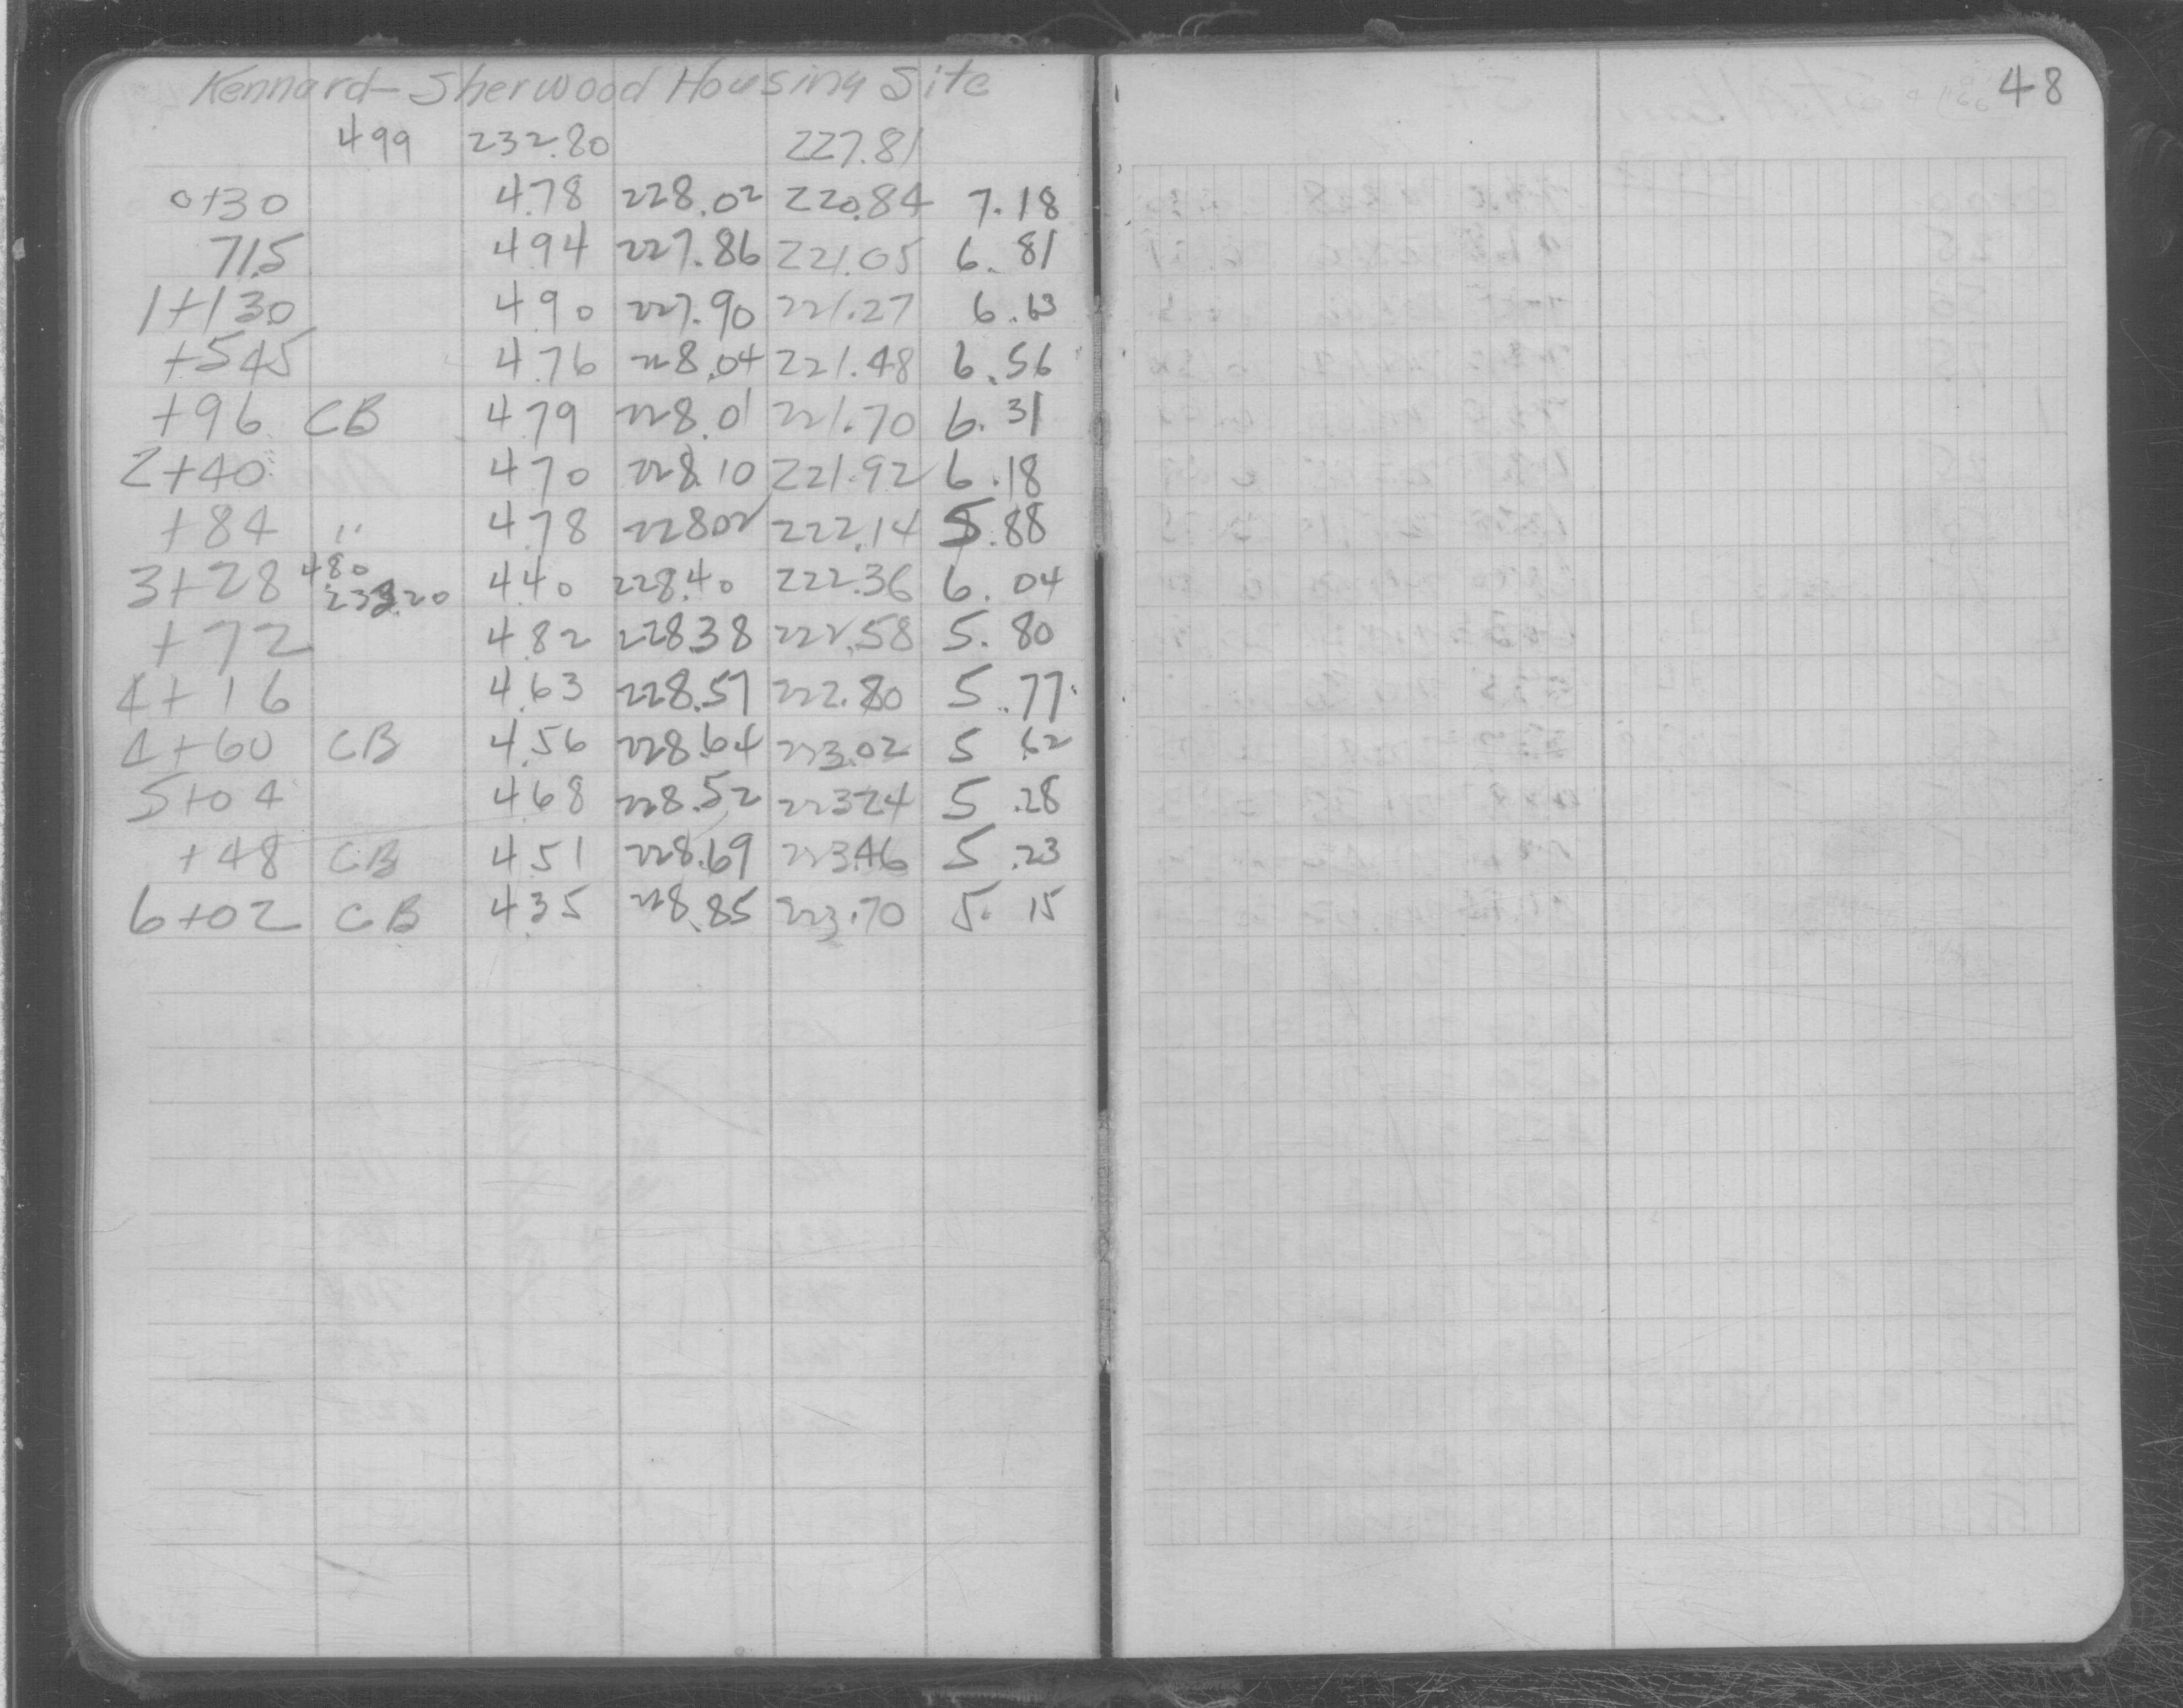 Kennard-Sherwood Housing Site 48
499 232.80 227.81
0+30 4.78 228.02 220.84 7.18
71.5 4.94 227.86 221.05 6.81
1+13.0 4.90 227.90 221.27 6.63
+54.5 4.76 228.04 221.48 6.56
+96 CB 4.79 228.01 221.70 6.31
2+40 4.70 228.10 221.92 6.18
+84 " 4.78 22802 222.14 5.88
3+28 480 233.20 4.40 228.40 222.36 6.04
+72 4.82 228.38 222.58 5.80
4+16 4.63 228.57 222.80 5.77
4+60 CB 4.56 228.64 223.02 5 .62
5+04 4.68 228.52 22324 5 .28
+48 CB 4.51 228.69 223.46 5 .23
6+02 CB 4.35 228.85 223.70 5. 15